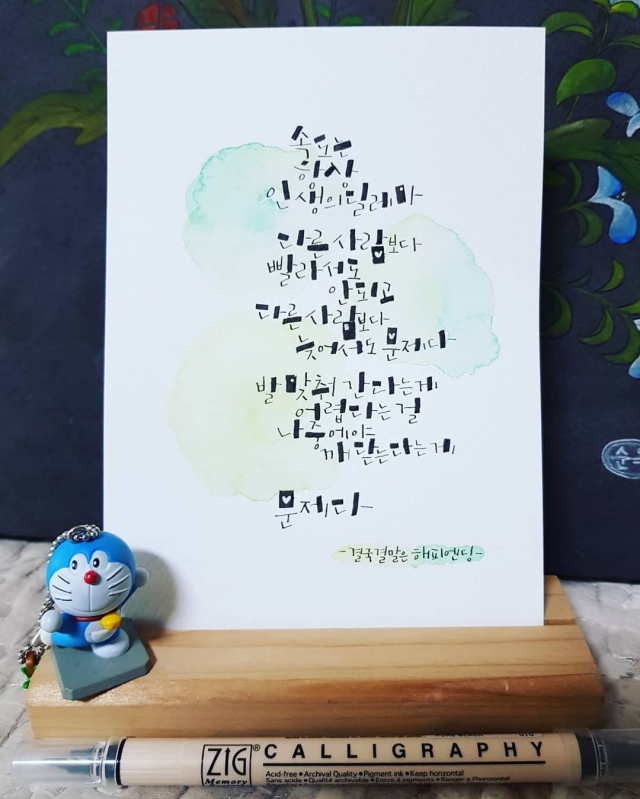 속도는
항상
인생의딜레마
다른사람보다
빨라서도
안되고
다른사람보다
늦어서도 문제다
발 맞춰 간다는게
어렵다는걸
나중에야
깨닫는다는게
문제다
-결국결말은 해피엔딩-
ZIG® CALLIGRAPHY
Memory
Acid-free • Archival Quality • Pigment ink • Keep horizontal
Sans acide • Qualité archive • Encre à pigments • Ranger à l'horizontal